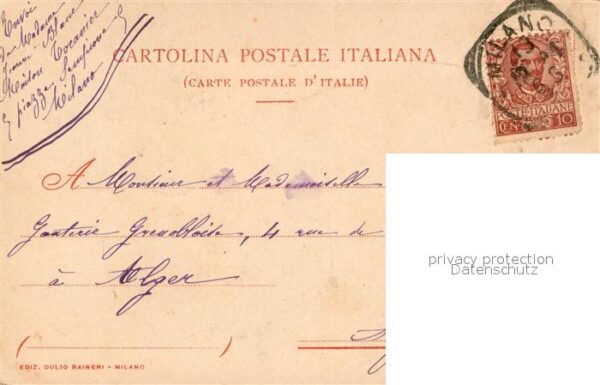 Envoi
de Madame
Jeanne Blanc
Maison Tocanier
7 piazza Sempione
Milano
CARTOLINA POSTALE ITALIANA
(CARTE POSTALE D'ITALIE)
MILANO
POSTE ITALIANE
CEN. 10
A Monsieur et Mademoiselle
Ganterie Grenobloise, 4 rue de
à Alger
privacy protection
Datenschutz
EDIZ. DULIO RAINERI - MILANO